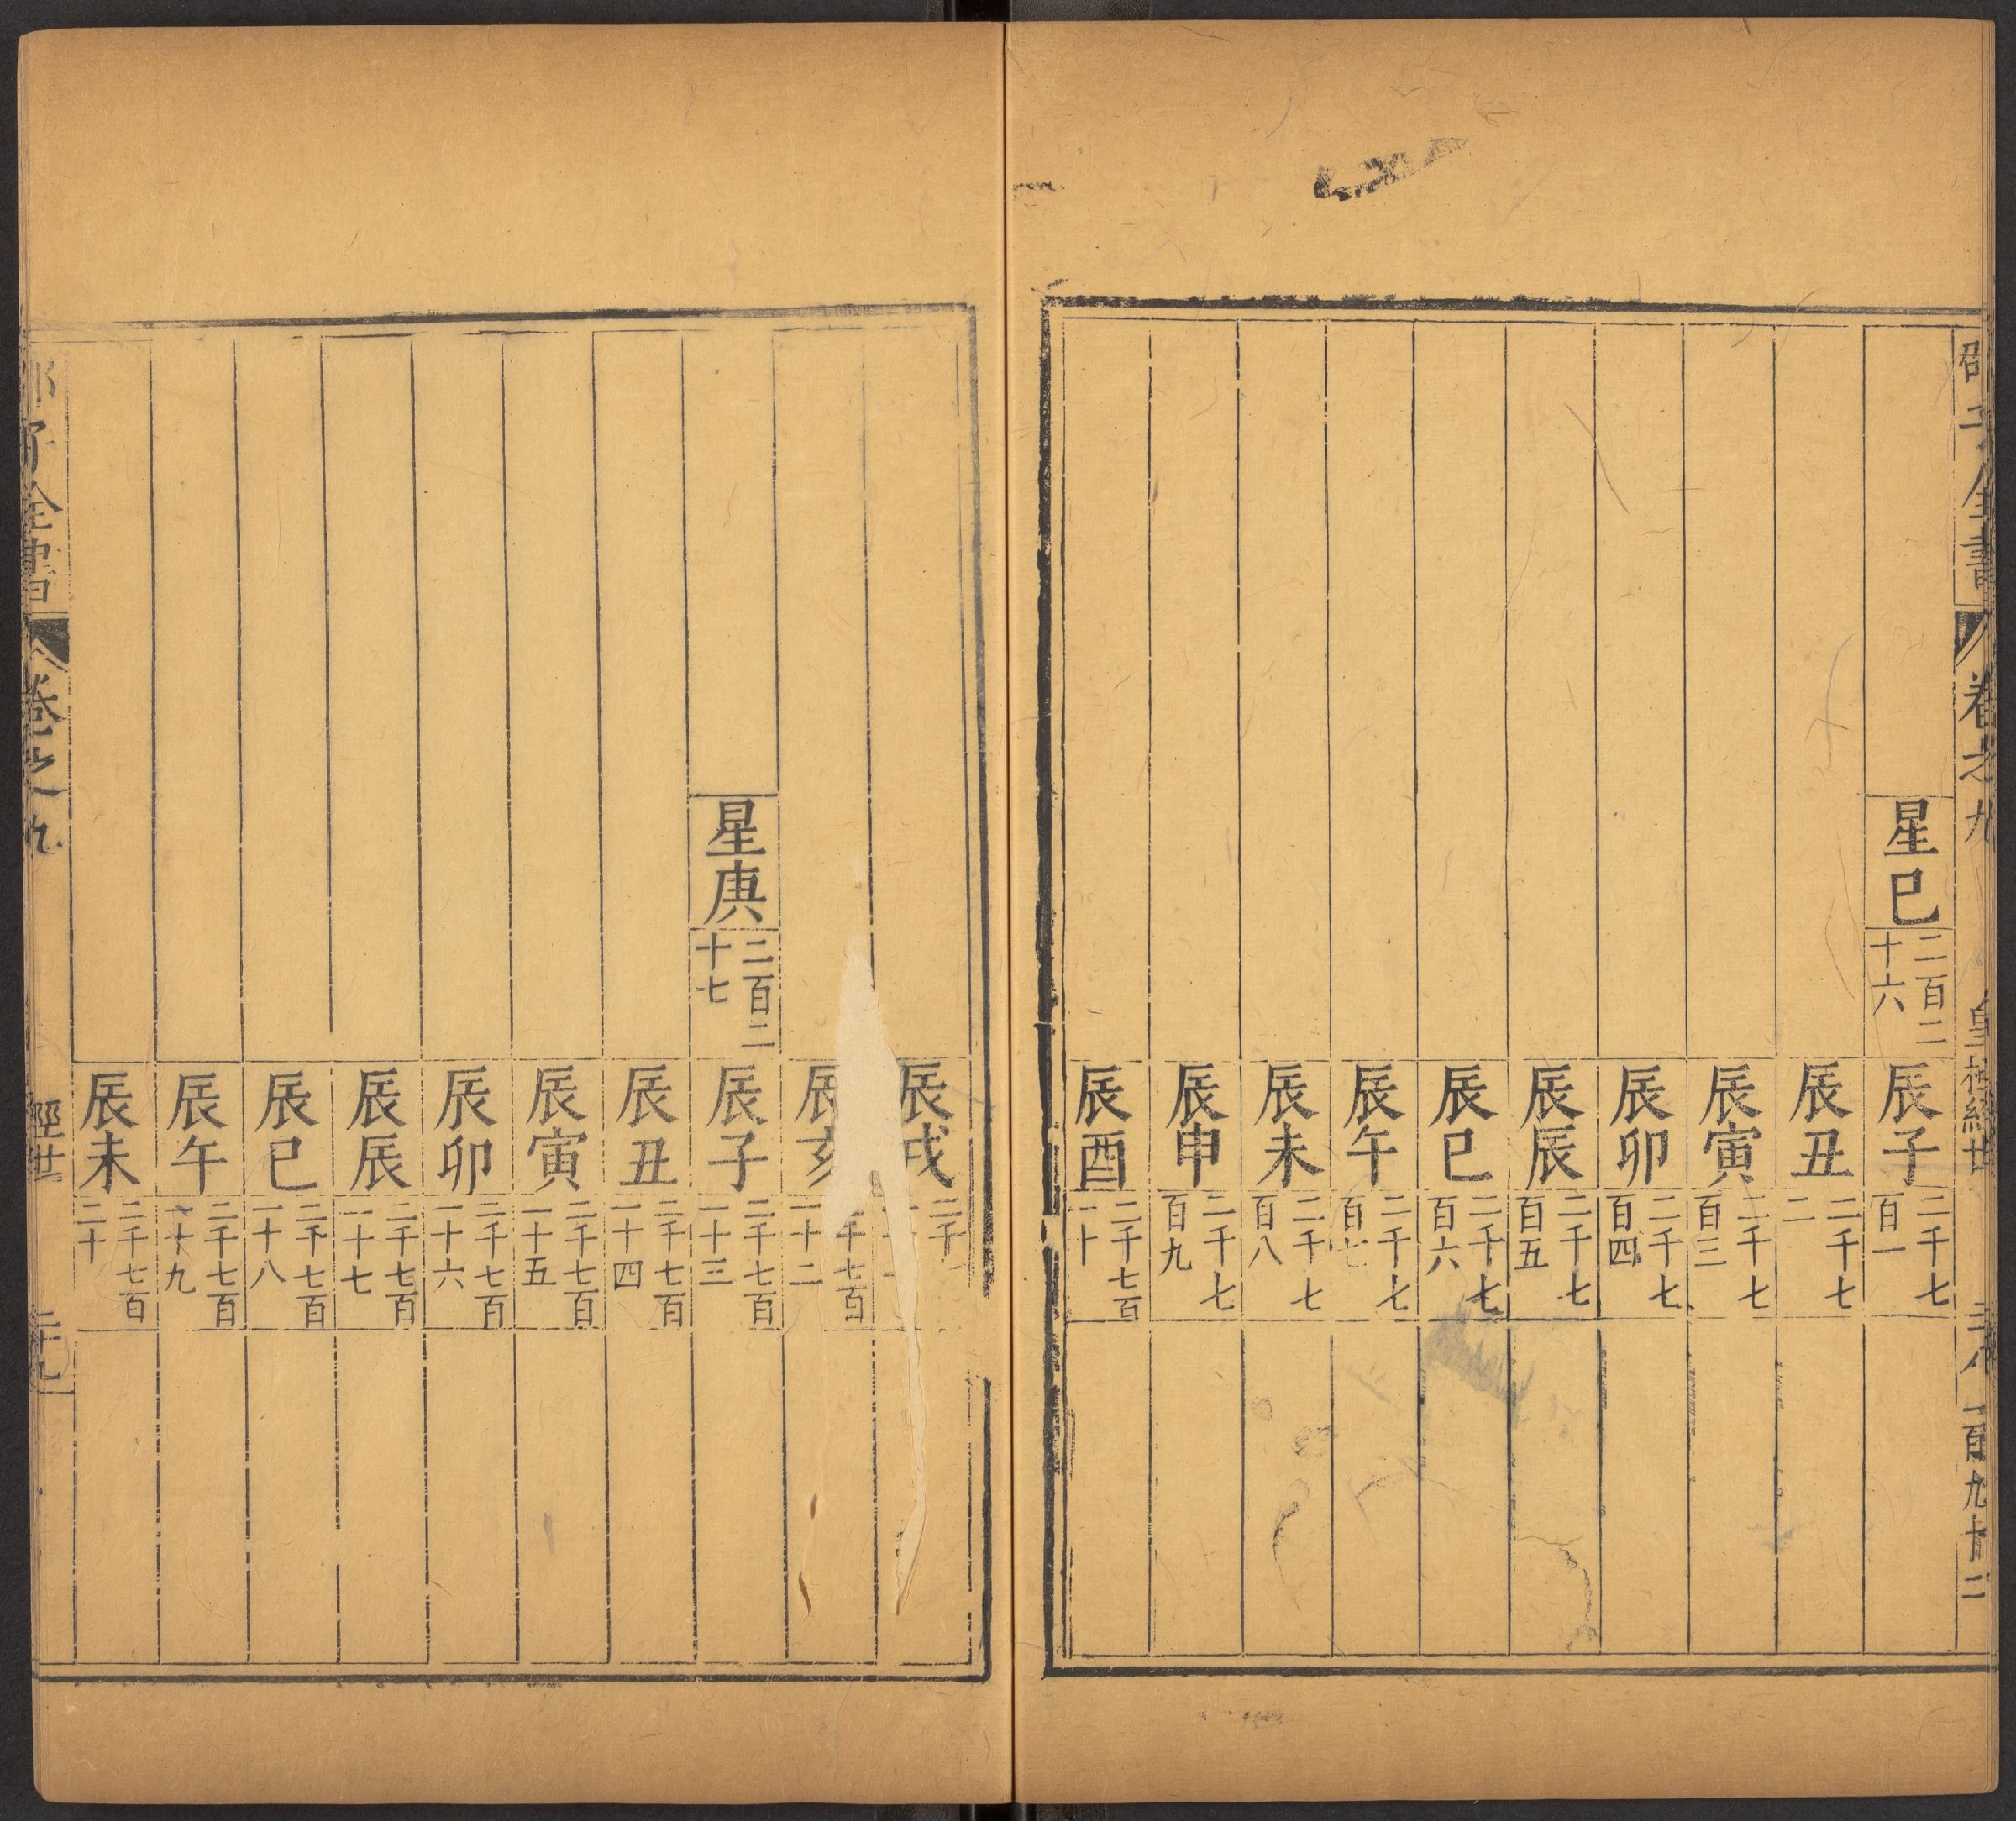 邵子全書 卷之九 皇極經世 二八 一百九十二
星巳 二百二十六 辰子 二千七百一
辰丑 二千七二
辰寅 二千七百三
辰卯 二千七百四
辰辰 二千七百五
辰巳 二千七百六
辰午 二千七百七
辰未 二千七百八
辰申 二千七百九
辰酉 二千七百一十
辰戌 二千
辰亥 二千七百一十二
星庚 二百二十七 辰子 二千七百一十三
辰丑 二千七百一十四
辰寅 二千七百一十五
辰卯 二千七百一十六
辰辰 二千七百一十七
辰巳 二千七百一十八
辰午 二千七百一十九
辰未 二千七百二十
邵子全書 卷之九 經世 二十九